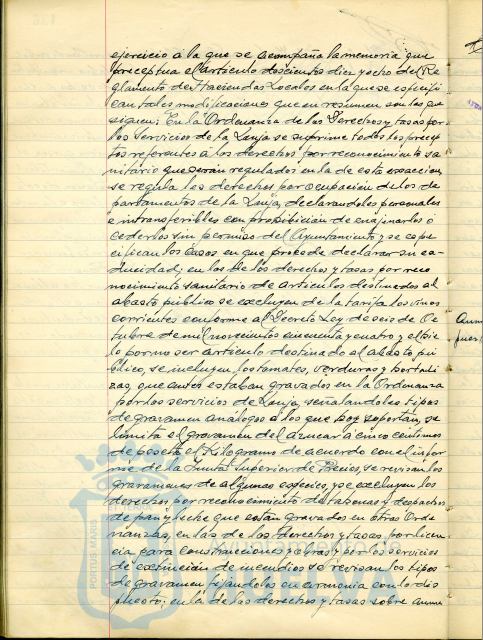 ejercicio a la que se acompaña la memoria que
preceptua el articulo doscientos diez y ocho del Re
glamento de Haciendas Locales en la que se especifi
can tales modificaciones que en resumen son las que
siguen; En la Ordenanza de los Derechos y tasas por
los Servicios de la Lonja se suprime todos los precep
tos referentes a los derechos por reconocimiento sa
nitario que serán regulados en la de esta exaccion,
se regula los derechos por ocupación de los de
partamentos de la Lonja, declarandoles personales
e intransferibles con prohibición de enajenarlos o
cederlos sin permiso del Ayuntamiento y se espe
cifican los casos en que procede declarar su ca-
ducidad; en las de los derechos y tasas por reco
nocimiento sanitario de articulos destinados al
abasto público se excluyen de la tarifa los vinos
corrientes conforme al Decreto Ley de seis de Oc
tubre de mil novecientos cincuenta y cuatro y el hie
lo por no ser articulo destinado al abasto pú
blico, se incluyen los tomates, verduras y hortali
zas, que antes estaban gravados en la Ordenanza
por los servicios de Lonja, señalandoles tipos
de gravamen análogos a los que hoy soportan, se
limita el gravamen del azucar a cinco centimos
de peseta el Kilogramo de acuerdo con el infor
me de la Junta Superior de Precios, se revisan los
gravamenes de algunas especies, y se excluyen los
derechos por reconocimiento de tahonas y despachos
de pan y leche que están gravados en otras Orde
nanzas, en las de los derechos y tasas por licen
cia para construcciones y obras y por los servicios
de extinción de incendios se revisan los tipos
de gravamen fijandolos en armonia con lo dis
puesto; en la de los derechos y tasas sobre anun
Ayuntamiento de
HUELVA
PORTUS MARIS